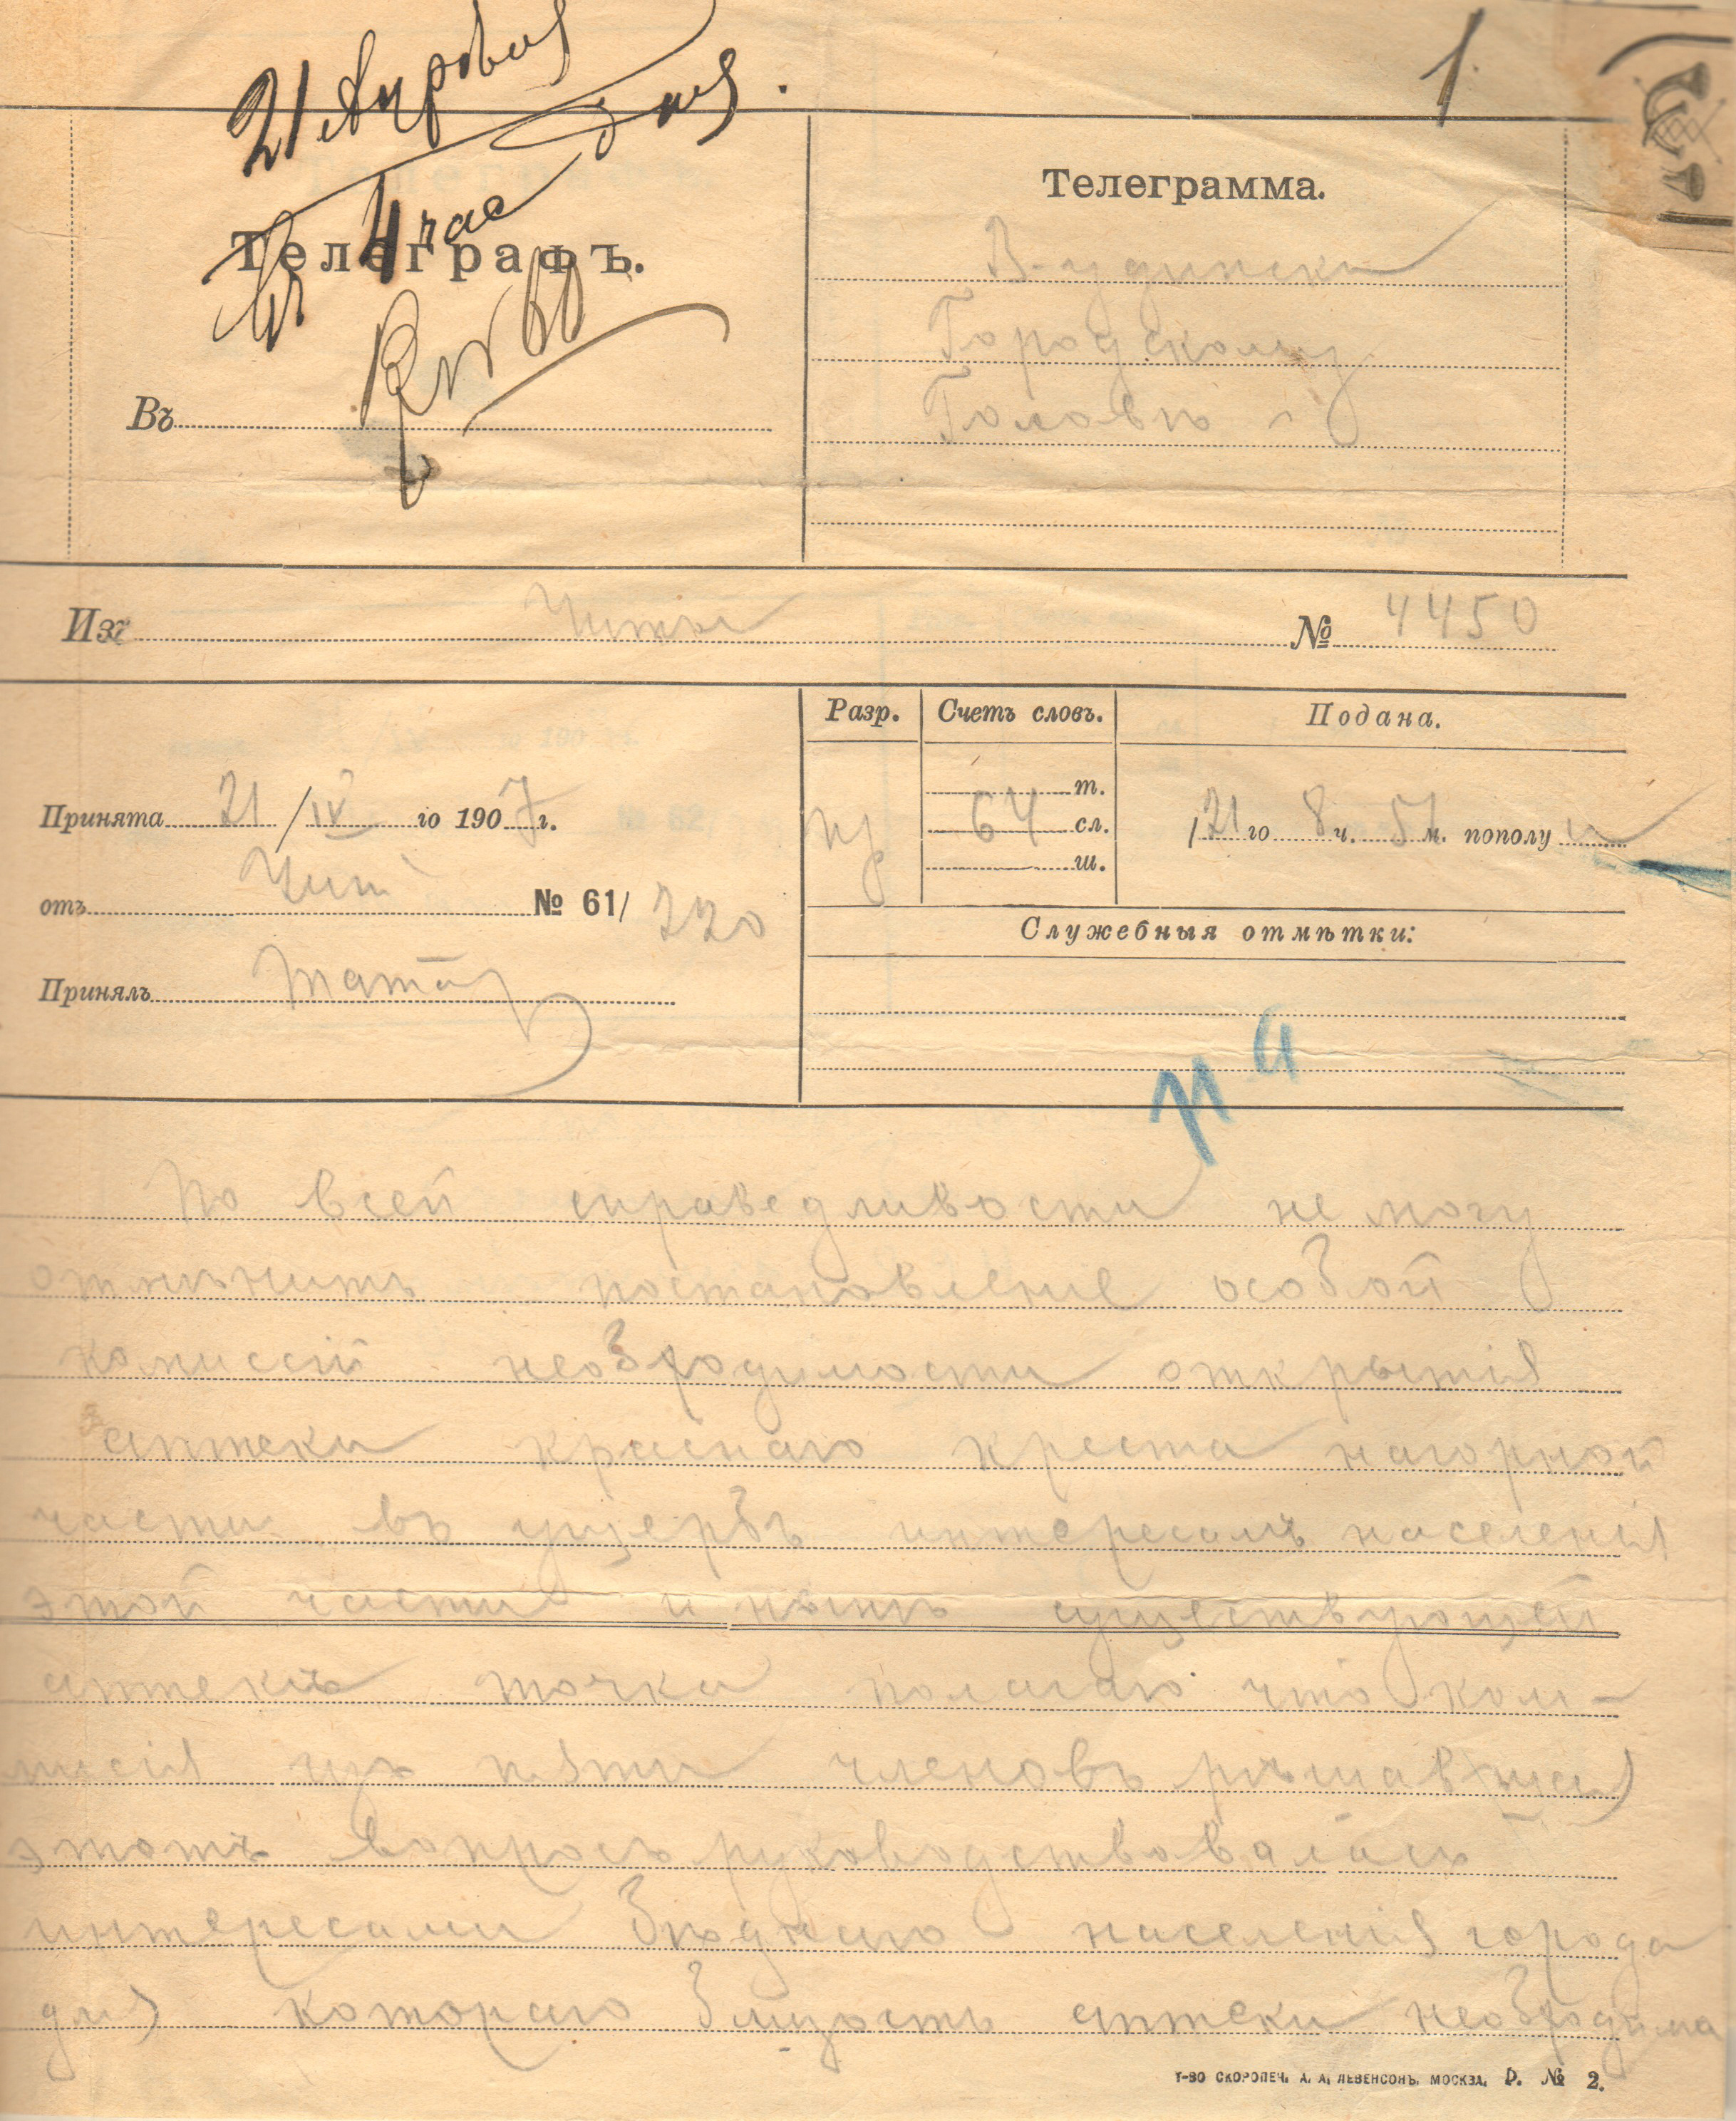 21 Апрѣля
4 час дня.
1
Телеграфъ.
Въ
Телеграмма.
В-удинскъ
Городскому
Головѣ
Изъ Читы № 4450
Разр. Счетъ словъ. Подана.
Принята 21/IV го 1907 г.
64 т. сл. ш.
21 го 8 ч. 51 м. пополу н
отъ Чит № 61/220
Служебныя отмѣтки:
Принялъ
По всей справедливости не могу
отмѣнить постановленіе особой
комиссіи необходимости открытія
аптеки краснаго креста нагорной
части въ ущербъ интересамъ населенія
этой части и нынѣ существующей
аптекѣ точка полагаю что ком-
мисія изъ пяти членовъ рѣшавшая
этотъ вопросъ руководствовалась
интересами бѣднаго населенія города
для котораго близость аптеки необходима
Т-ВО СКОРОПЕЧ. А. А. ЛЕВЕНСОНЪ. МОСКВА. D. № 2.